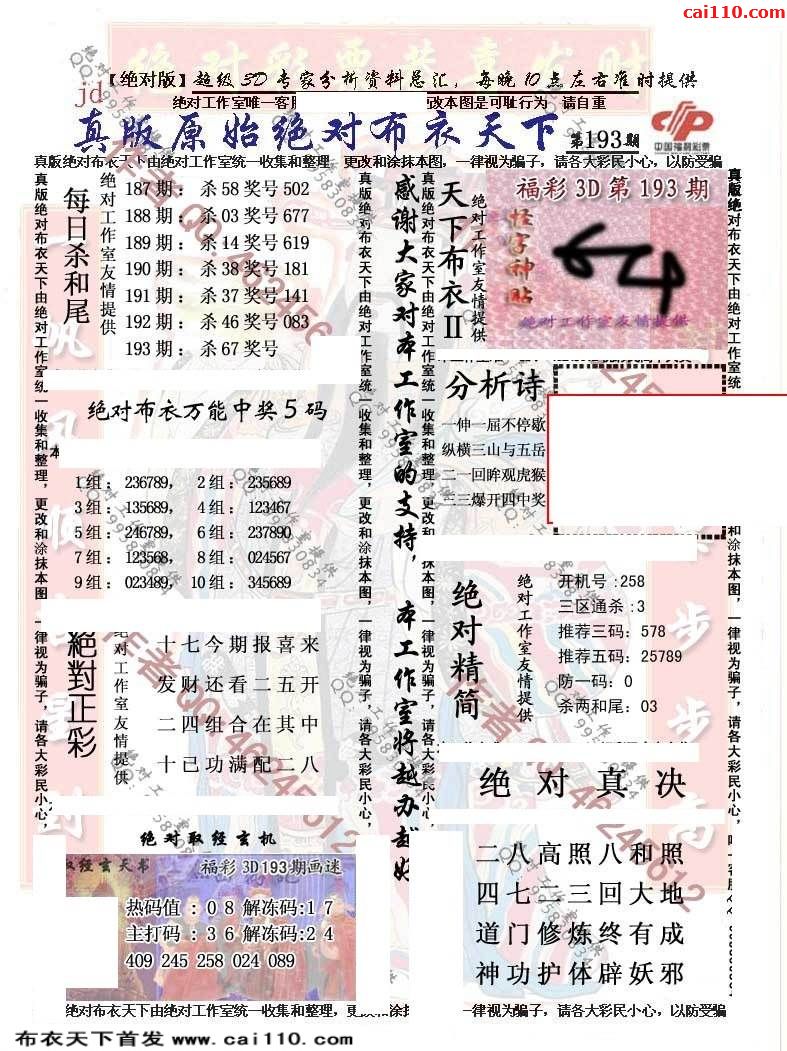 cai110.com
【绝对版】超级3D专家分析资料总汇，每晚10点左右准时提供
jd
绝对工作室唯一客服
改本图是可耻行为 请自重
真版原始绝对布衣天下 第193期
中国福利彩票
真版绝对布衣天下由绝对工作室统一收集和整理，更改和涂抹本图，一律视为骗子，请各大彩民小心，以防受骗
每日杀和尾
绝对工作室友情提供
187期：杀58奖号502
188期：杀03奖号677
189期：杀14奖号619
190期：杀38奖号181
191期：杀37奖号141
192期：杀46奖号083
193期：杀67奖号
绝对布衣万能中奖5码
1组：236789，2组：235689
3组：135689，4组：123467
5组：246789，6组：237890
7组：123568，8组：024567
9组：023489，10组：345689
絕對正彩
绝对工作室友情提供
十七今期报喜来
发财还看二五开
二四组合在其中
十己功满配二八
绝对取经玄机
取经玄天书
福彩3D193期画迷
热码值：08解冻码:17
主打码：36解冻码:24
409 245 258 024 089
真版绝对布衣天下由绝对工作室统一收集和整理，更改和涂抹本图，一律视为骗子，请各大彩民小心，
感谢大家对本工作室的支持，本工作室将越办越好
真版绝对布衣天下由绝对工作室统一收集和整理，更改和涂抹本图，一律视为骗子，请各大彩民小心，
天下布衣II
绝对工作室友情提供
福彩3D第193期
怪字神贴
绝对工作室友情提供
分析诗
一伸一屈不停歇
纵横三山与五岳
二一回眸观虎猴
三三爆开四中奖
绝对精简
绝对工作室友情提供
开机号:258
三区通杀:3
推荐三码：578
推荐五码：25789
防一码：0
杀两和尾：03
绝对真决
二八高照八和照
四七二三回大地
道门修炼终有成
神功护体辟妖邪
绝对布衣天下由绝对工作室统一收集和整理，更改和涂抹
一律视为骗子，请各大彩民小心，以防受骗
布衣天下首发 www.cai110.com